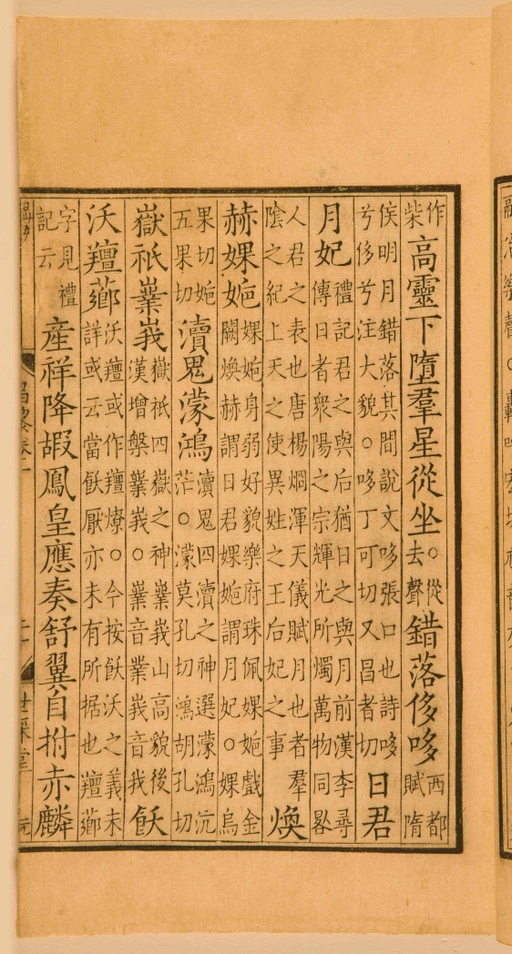 作柴高靈下墮羣星從坐。從去聲錯落侈哆西都賦隋
侯明月錯落其間說文哆張口也詩哆兮侈兮注大貌。哆丁可切又昌者切日君
月妃禮記君之與后猶日之與月前漢李尋傳日者衆陽之宗輝光所燭萬物同晷
人君之表也唐楊烱渾天儀賦月也者羣陰之紀上天之使異姓之王后妃之事煥
赫婐㛂婐㛂身弱好貌樂府珠佩婐㛂戲金闕煥赫謂日君婐㛂謂月妃。婐烏
果切㛂五果切瀆鬼濛鴻瀆鬼四瀆之神選濛鴻沆茫。濛莫孔切鴻胡孔切
嶽祇嶪峩嶽祇四嶽之神嶪峩山高貌後漢增槃嶪峩。嶪音業峩音我飫
沃羶薌沃羶或作羶燎。今按飫沃之義未詳或云當飫厭亦未有所據也羶薌
字見禮記云產祥降嘏鳳皇應奏舒翼自拊赤麟